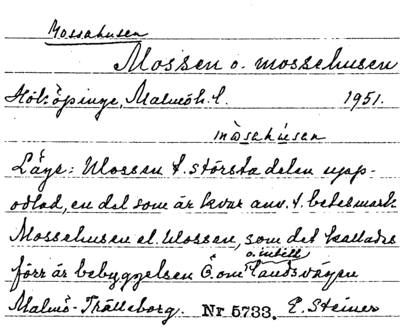 Mossahusen
Mossen o. mossehusen
Hököpinge, Malmöh. l. 1951.
måsahúsen
Läge: Mossen t. största delen upp-
odlad, en del som är kvar anv. t. betesmark
Mossehusen el. Mossen, som det kallades
o. intill
förr är bebyggelsen Ö. om landsvägen
Malmö-Trälleborg. Nr 5733. E. Steiner